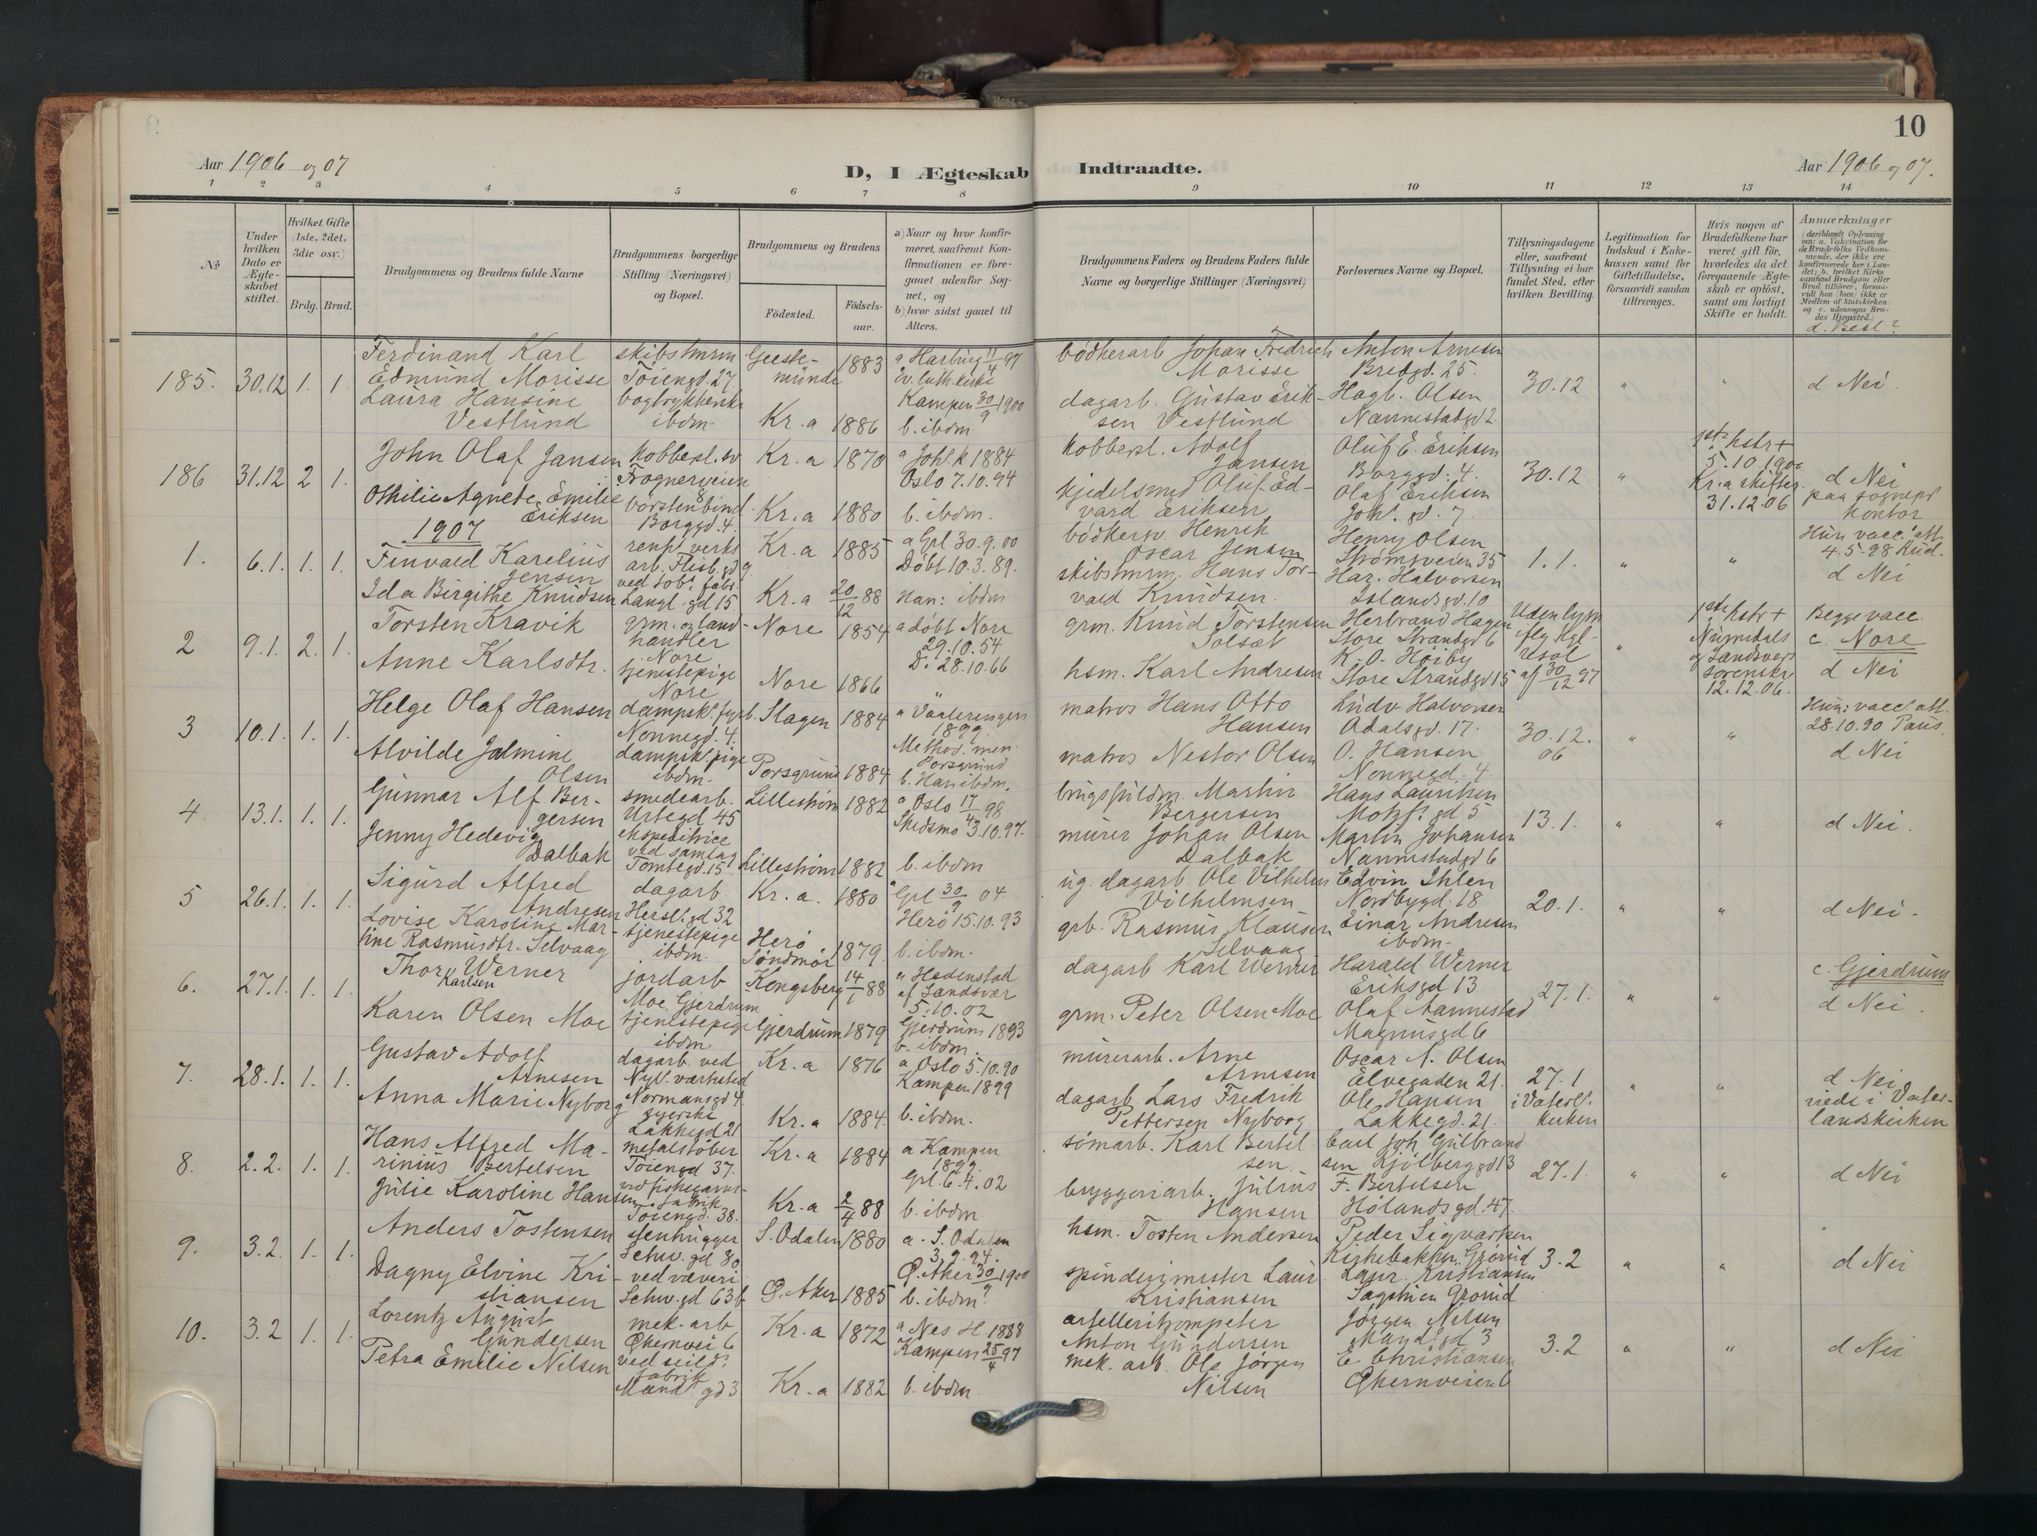 10
Aar 1906 og 07
D, I Ægteskab Indtraadte.
Aar 1906 og 07.
1 2 3 4 5 6 7 8 9 10 11 12 13 14
No
Under hvilken Dato er Ægteskabet stiftet.
Hvilket Gifte (1ste, 2det, 3die osv.)
Brdg. Brud.
Brudgommens og Brudens fulde Navne
Brudgommens borgerlige Stilling (Næringsvei) og Bopæl.
Brudgommens og Brudens
Fødested.
Fødselsaar.
a) Naar og hvor konfirmeret, saafremt Konfirmationen er foregaaet udenfor Sognet, og
b) hvor sidst gaaet til Alters.
Brudgommens Faders og Brudens Faders fulde Navne og borgerlige Stillinger (Næringsvei)
Forlovernes Navne og Bopæl.
Tillysningsdagene eller, saafremt Tillysning ei har fundet Sted, efter hvilken Bevilling.
Legitimation for Indskud i Enkekassen samt for Giftetilladelse, forsaavidt saadan tiltrænges.
Hvis nogen af Brudefolkene har været gift før, hvorledes da det foregaaende Ægteskab er opløst, samt om lovligt Skifte er holdt.
Anmærkninger
d. Besl?
185. 30.12 1. 1.
Ferdinand Karl
Edmund Morisse
Laura Hansine
Vestlund
skibstmrm
Töiengd. 27.
ibdm.
Geestemünde 1883
Kr.a 1886
a Harburg 11/4 97
Ev. luth. kirke
Kampen 30/9 1900
b. ibdm
bødkerarb Johan Fredrich
Morisse
dagarb. Gustav Eriksen Vestlund
Anton Arnesen
Bredgd. 25.
Hagb. Olsen
Nannestadgd 2
30.12 " " d Nei.
186 31.12 2 1.
John Olaf Jansen
Othilie Agnete Emilie
Eriksen
kobbersl. sv
Frognerveien
børstenbind.
Borggd. 4.
Kr.a 1870
Kr.a 1880
a Joh.k 1884
Oslo 7.10.94
b. ibdm.
kobbersl. Adolf
Jansen
kjedelsmed Oluf Edvard Eriksen
Oluf E. Eriksen
Borggd. 4.
Olaf Eriksen
Joh. gd. 7.
30.12 "
1ste hstr +
5.10.1906
Kr.a skifter.
31.12.06
d Nei
paa sognepr
kontor
1907
1. 6.1. 1. 1.
Finvald Karelius
Jensen
Ida Birgithe Knudsen
renh. verks
arb. Flisb. gd 9
ved tob. fabr
Langl. gd 15
Kr.a 1885
Kr.a 20/12 88
a Grl 30.9.00
Döbt 10.3.89.
Han: ibdm
bødkersv Henrik
Oscar Jensen
skibstmrm. Hans Torvald Knudsen.
Henry Olsen
Strømsveien 35
Har. Halvorsen
Islandsgd. 10
1.1. " "
Hun vacc. att.
4.5-98
d Nei
2 9.1. 2. 1.
Torsten Kravik
Anne Karlsdtr.
grm. og landhandler
Nore
tjenestepige
Nore
Nore 1854
Nore 1866
a døbt Nore
29.10.54
D. 28.10.66
grm. Knud Torstensen
hsm. Karl Andresen
Herbrand Hagen
Store Strandgd 6
K. O. Höiby
Store Strandgd 15
Uden lysn
af 30/12 97
"
1ste hstr +
Numedals
og Sandsvers
sorenskr
12.12.06.
Begge vacc.
c. Nore
d Nei
3 10.1. 1. 1.
Helge Olaf Hansen
Alvilde Jalmine
Olsen
dampsk. fyrb.
Nonnegd. 4.
dampsk. pige
ibdm.
Slagen 1884
Porsgrund 1884
a Vaalerengen
1899
Method. men.
Porsgrund
b. Han ibdm.
matros Hans Otto
Hansen
matros Nestor Olsen
Ludv Halvorsen
Odalsgd. 17.
O. Hansen
Nonnegd. 4
30.12.
06
" "
Hun: vacc. att.
28.10.90
d Nei
4. 13.1. 1. 1.
Gunnar Alf Bergersen
Jenny Hedevig
Dalbak
smedearb.
Urtegd 45
ekspeditrice
ved samlag
Tomtegd. 15.
Lilleström 1882
Lilleström 1882
a Oslo 17/4 98
Skedsmo 3.10.97.
b. ibdm
Martin
Bergersen
murer Johan Olsen
Dalbak
Hans Lauritzen
Motzf. gd 5
Martin Johansen
Nannestadgd 6.
13.1. " " d Nei.
5 26.1. 1. 1.
Sigurd Alfred
Andresen
Lovise Karoline Martine Rasmusdtr. Selvaag
dagarb.
Hersl. gd 32
tjenestepige
ibdm.
Kr.a. 1880
Herø
Søndmør 1879.
a Grl 30/9 04
Herø 15.10.93
b. ibdm.
ug. dagarb. Ole Vilhelm
Vilhelmsen
grb. Rasmus Klausen
Selvaag
Edvin Ihlen
Nordbygd. 18
Einar Andresen
ibdm.
20.1. " " d Nei.
6. 27.1. 1. 1.
Thor Werner
Karlsen
Karen Olsen Moe
jordarb
Moe, Gjerdrum
tjenestepige
ibdm.
Kongsberg 14/1 88
Gjerdrum 1879
a Hedenstad
af Sandsvær
5.10.02
Gjerdrum 1893
b. ibdm.
dagarb Karl Werner
grm. Peter Olsen Moe
Harald Werner
Eriksgd 13
Olaf Aannestad
Magnusgd 6
27.1. " "
c. Gjerdrum
d Nei.
7. 28.1. 1. 1.
Gustav Adolf
Arnesen
Anna Marie Nyborg
dagarb. ved
Nyl. værksted
Normansgd 4.
syerske
Lakkegd 21
Kr.a 1876
Kr.a 1884.
a Oslo 5.10.90
Kampen 1899
b. ibdm.
murerarb. Arne
Arnesen
dagarb Lars Fredrik
Pettersen Nyborg
Oscar A. Olsen
Elvegaden 21.
Ole Hansen
Lakkegd. 21.
27.1
i Vaterl.
kirken
" "
d Nei
viede i Vaterlandskirken
8. 2.2. 1. 1.
Hans Alfred Marinius Bertelsen
Julie Karoline Hansen
metalstöber
Töiengd 37.
fabrik
Töiengd. 38.
Kr.a 1884
Kr.a 2/4 88
a Kampen
1899.
Grl. 6.4.02
b. ibdm
sömarb. Karl Bertelsen.
bryggeriarb. Julius
Hansen
Carl Joh. Gulbrandsen Kjölberggd 13
F. Bertelsen
Hölandsgd. 47.
27.1. " " d Nei
9. 3.2. 1. 1.
Anders Tostensen
Dagny Elvine Kristiansen
stenhugger
Schw. gd 80
ved væveri
Schw. gd 63b
S. Odalen 1880
Ø. Aker 1885
a. S. Odalen
3.9.94.
Ø. Aker 30/9 1900
b. ibdm
hsm. Tosten Andersen
spinderimester Laur.
Kristiansen
Peder Sigvartsen
Kirkebakken Grorud
Laur. Kristiansen
Grorud
3.2 " " d Nei
10. 3.2 1. 1.
Lorentz August
Gundersen
Petra Emilie Nilsen
mek. arb
Økernvei 6
ved seild.
fabrik
Mand. gd 3
Kr.a 1872
Kr.a 1882
a. Nes H 1888
Kampen 25/4 97
b. ibdm.
artelleritrompeter
Anton Gundersen
mek. arb. Ole Jörgen
Nilsen
Jörgen Nilsen
Mand. gd 3
E. Christiansen
Økernveien 6
3.2 " " d Nei